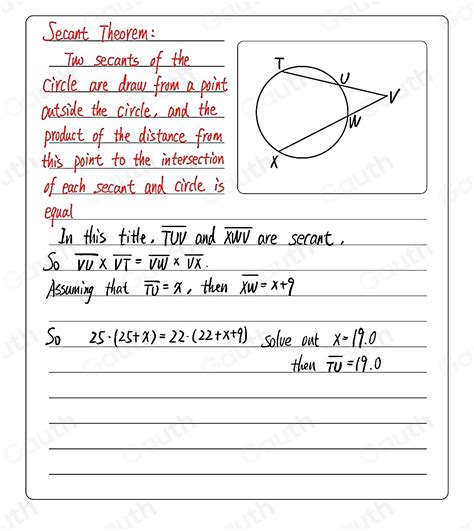 Secant Theorem:
Two secants of the
circle are draw from a point
outside the circle, and the
product of the distance from
this point to the intersection
of each secant and circle is
equal
T
U
V
W
X
In this title, T̅U̅V̅ and X̅W̅V̅ are secant,
So V̅U̅ × V̅T̅ = V̅W̅ × V̅X̅.
Assuming that T̅U̅ = x, then X̅W̅ = x+9
So 25·(25+x)=22·(22+x+9) Solve out x=19.0
then T̅U̅ =19.0
Gauth